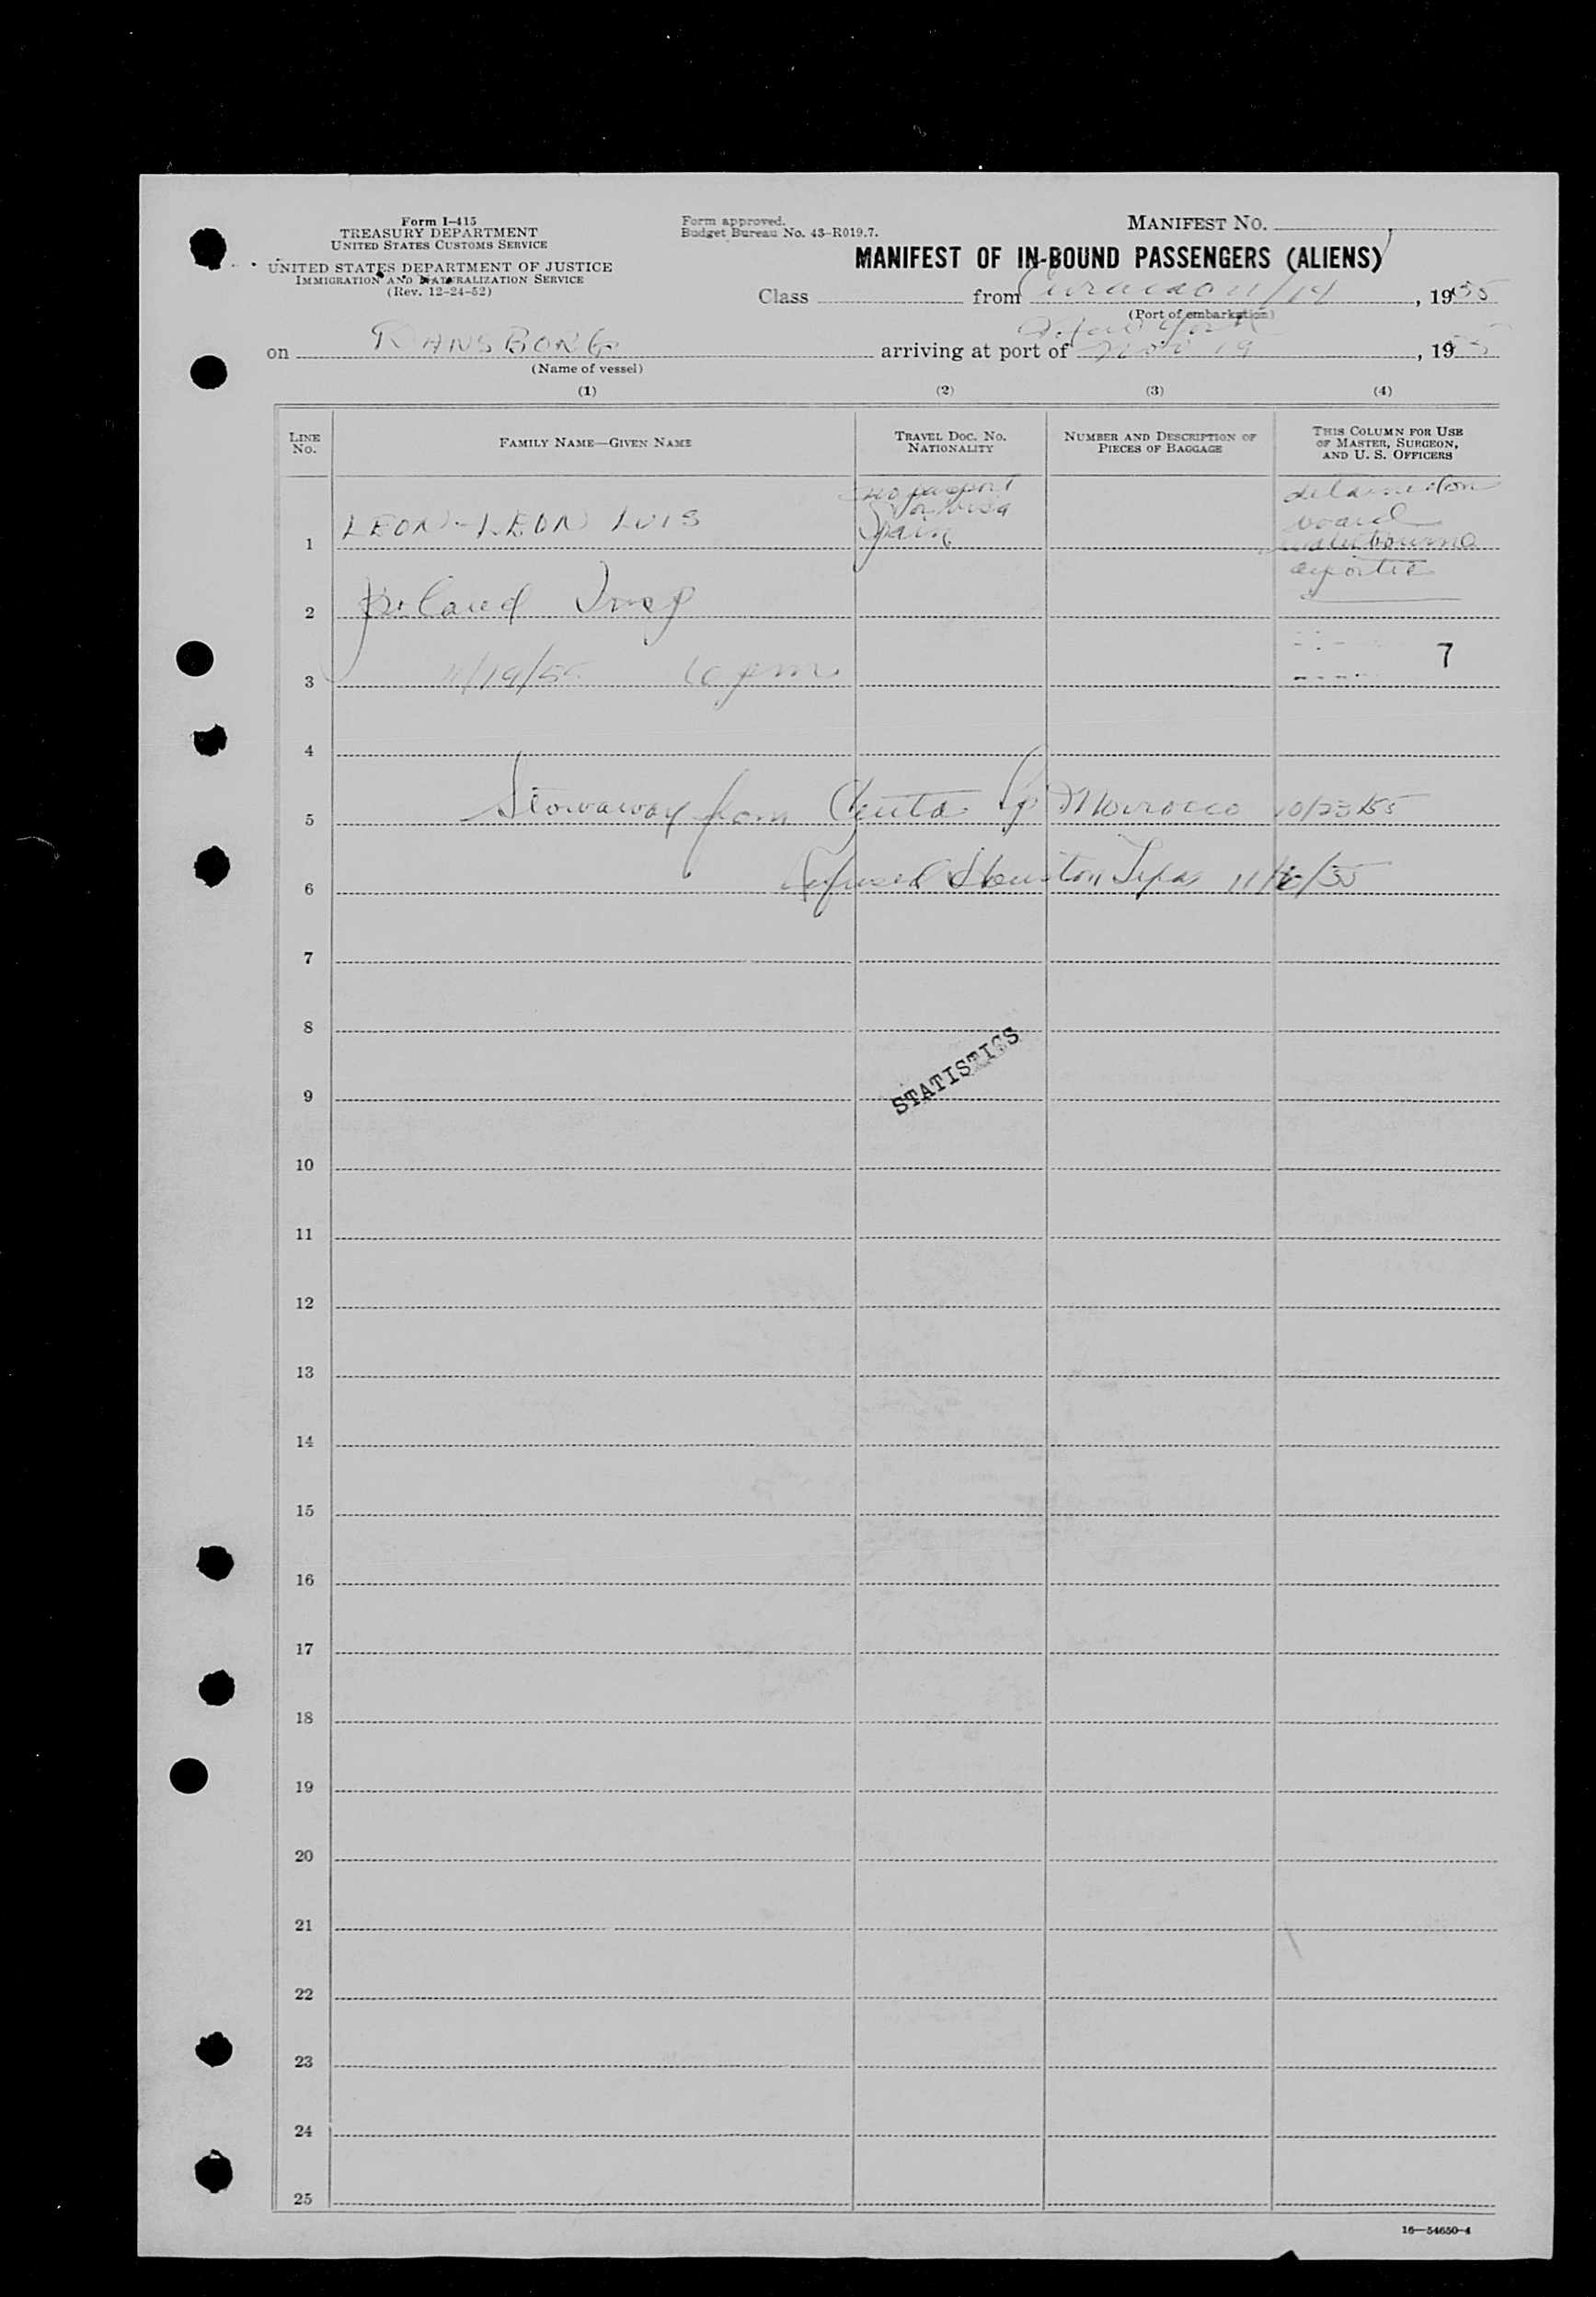 Form I-415
TREASURY DEPARTMENT
UNITED STATES CUSTOMS SERVICE
UNITED STATES DEPARTMENT OF JUSTICE
IMMIGRATION AND NATURALIZATION SERVICE
(Rev. 12-24-52)
Form approved.
Budget Bureau No. 43-R019.7.
MANIFEST NO.
MANIFEST OF IN-BOUND PASSENGERS (ALIENS)
Class from Curacao 11/14, 1955
(Port of embarkation)
on arriving at port of New York Nov 19, 1955
(Name of vessel)
(1) (2) (3) (4)
LINE NO.
FAMILY NAME—GIVEN NAME
TRAVEL DOC. NO. NATIONALITY
NUMBER AND DESCRIPTION OF PIECES OF BAGGAGE
THIS COLUMN FOR USE OF MASTER, SURGEON, AND U. S. OFFICERS
no passport
or visa
1 LEON-LEON LUIS Spain
detained on
board
2
3 11/19/55 pm 7
4
5 Stowaway from Ceuta Sp Morocco 10/23/55
6 Refused Houston Texas
7
8
STATISTICS
9
10
11
12
13
14
15
16
17
18
19
20
21
22
23
24
25
16—54650-4